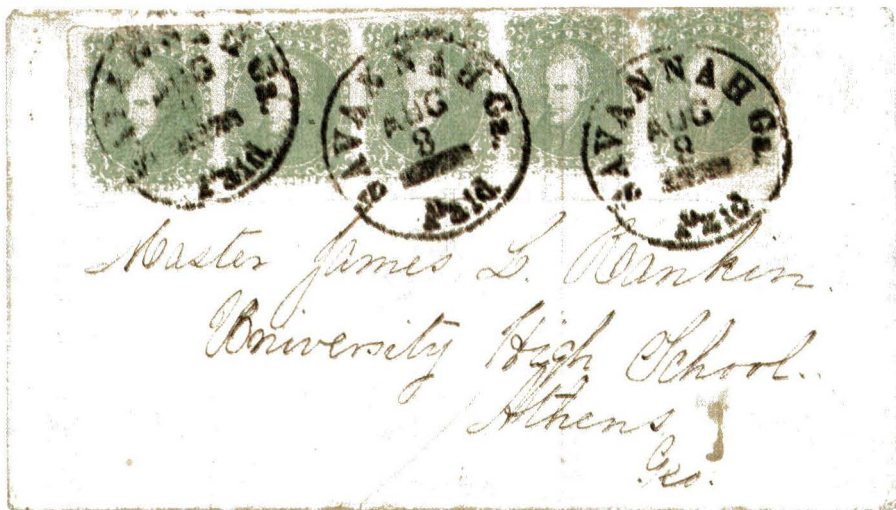 SAVANNAH Ga.
AUG
8
Paid
SAVANNAH Ga.
AUG
8
Paid
SAVANNAH Ga.
AUG
8
Paid
Master James L. Rankin.
University High School.
Athens
Geo.